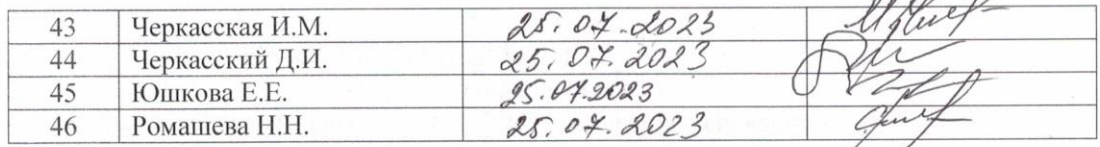 43 Черкасская И.М. 25.07.2023
44 Черкасский Д.И. 25.07.2023
45 Юшкова Е.Е. 25.07.2023
46 Ромашева Н.Н. 25.07.2023